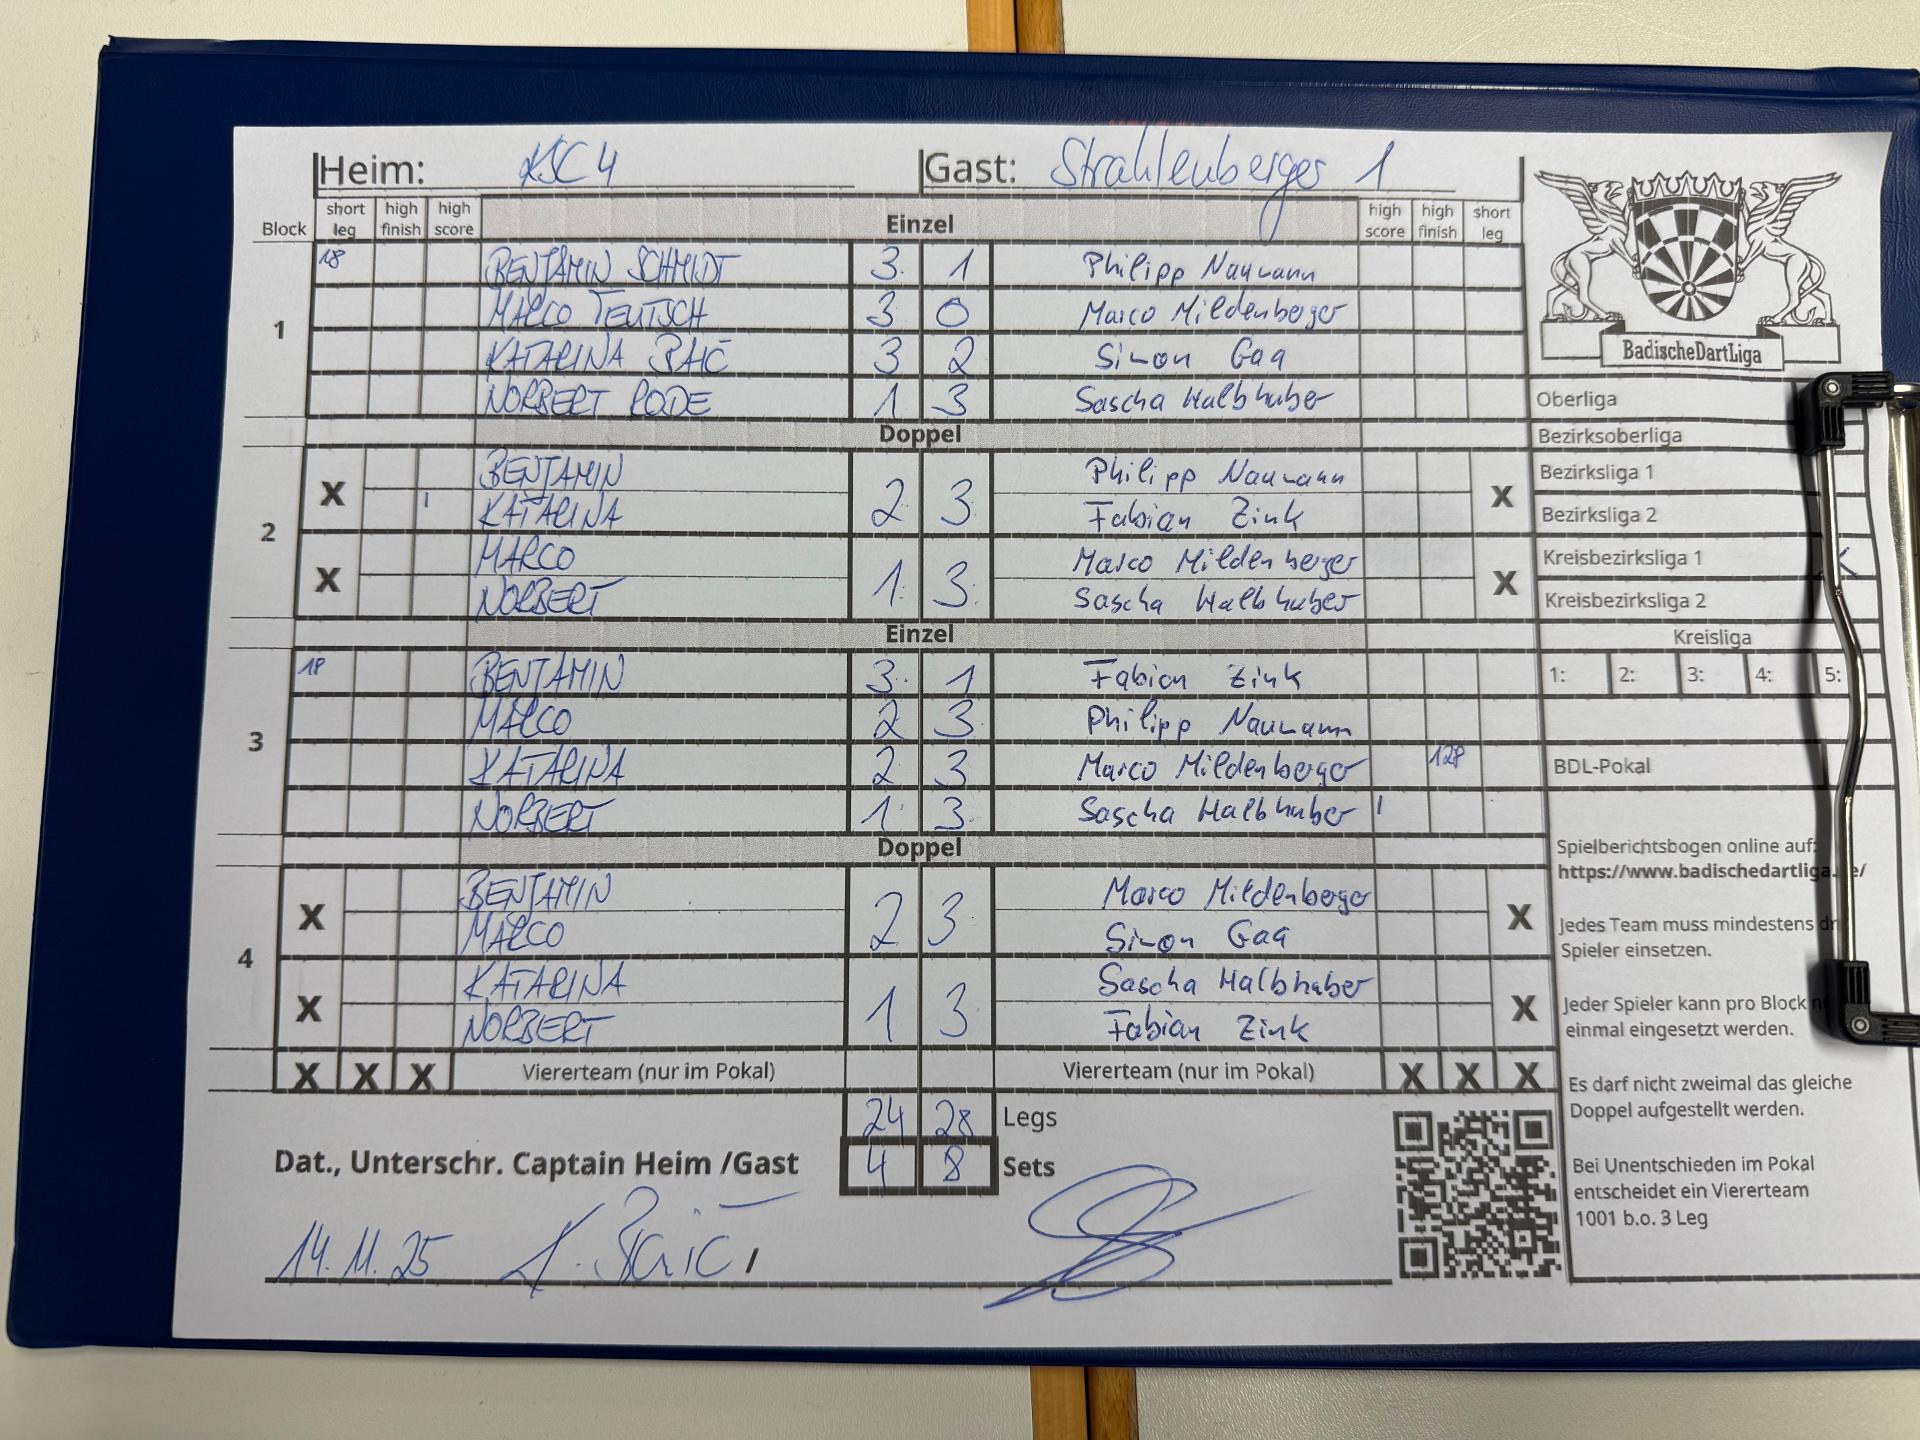 Heim: KSC 4 Gast: Strahlenberger 1
Block short leg high finish high score Einzel high score high finish short leg
1
18 BENJAMIN SCHMIDT 3 1 Philipp Naumann
MARCO TEUTSCH 3 0 Marco Mildenberger
KATARINA BAIĆ 3 2 Simon Gaa
NORBERT RODE 1 3 Sascha Halbhuber
Doppel
2
X BENJAMIN 2 3 Philipp Naumann X
I KATARINA Fabian Zink
X MARCO 1 3 Marco Mildenberger X
NORBERT Sascha Halbhuber
Einzel
3
18 BENJAMIN 3 1 Fabian Zink
MARCO 2 3 Philipp Naumann
KATARINA 2 3 Marco Mildenberger 128
NORBERT 1 3 Sascha Halbhuber I
Doppel
4
X BENJAMIN 2 3 Marco Mildenberger X
MARCO Simon Gaa
X KATARINA 1 3 Sascha Halbhuber X
NORBERT Fabian Zink
X X X Viererteam (nur im Pokal) Viererteam (nur im Pokal) X X X
24 28 Legs
Dat., Unterschr. Captain Heim /Gast 4 8 Sets
14.11.25 K. Baić
BadischeDartLiga
Oberliga
Bezirksoberliga
Bezirksliga 1
Bezirksliga 2
Kreisbezirksliga 1 X
Kreisbezirksliga 2
Kreisliga
1: 2: 3: 4: 5:
BDL-Pokal
Spielberichtsbogen online auf:
https://www.badischedartliga.
Jedes Team muss mindestens
Spieler einsetzen.
Jeder Spieler kann pro Block
einmal eingesetzt werden.
Es darf nicht zweimal das gleiche
Doppel aufgestellt werden.
Bei Unentschieden im Pokal
entscheidet ein Viererteam
1001 b.o. 3 Leg